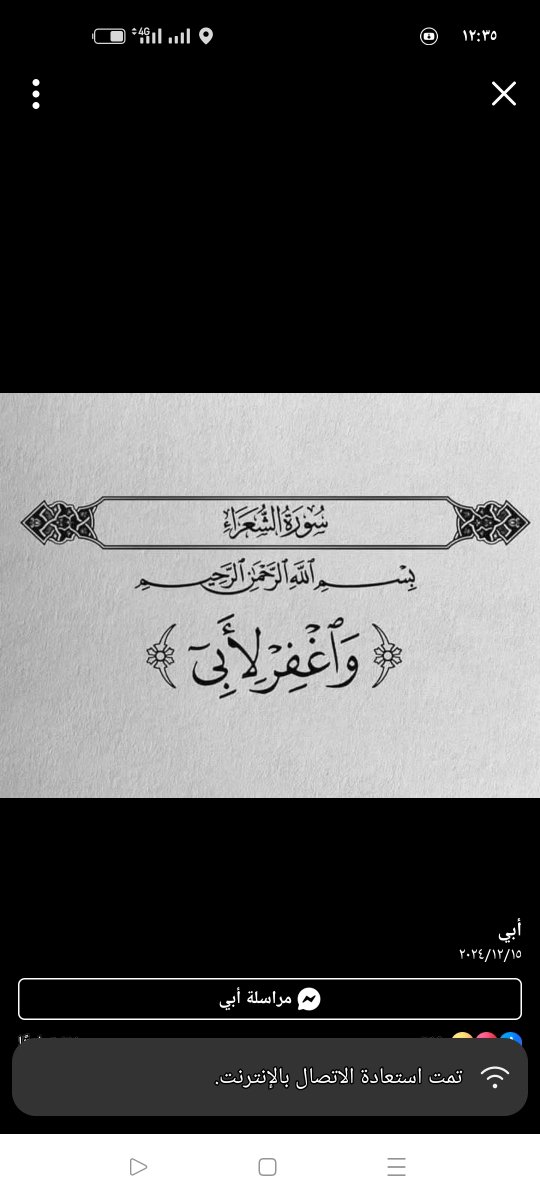 ١٢:٣٥
4G
سُورَةُ الشُّعَرَاءِ
بِسْمِ ٱللَّهِ ٱلرَّحْمَٰنِ ٱلرَّحِيمِ
وَٱغْفِرْ لِأَبِىٓ
أبي
٢٠٢٤/١٢/١٥
مراسلة أبي
تمت استعادة الاتصال بالإنترنت.